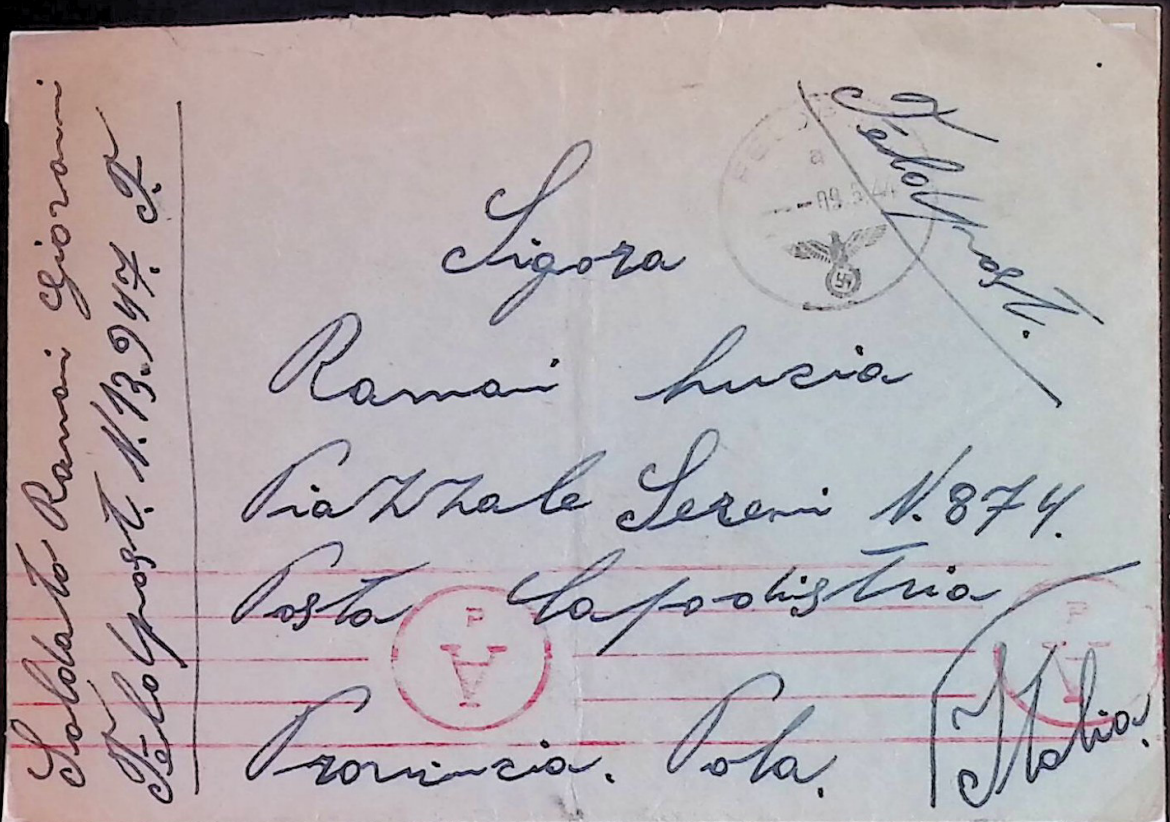 Soldato Ramani Giovanni
Feldpost. N. 13.947. F.
Feldpost.
FELDPOST
a
--09.5.44
Sigora
Ramani Luzia
Piazzale Sereni N. 874.
Posta Capodistria
Provinzia. Pola.
Italia.
P
A
P
A